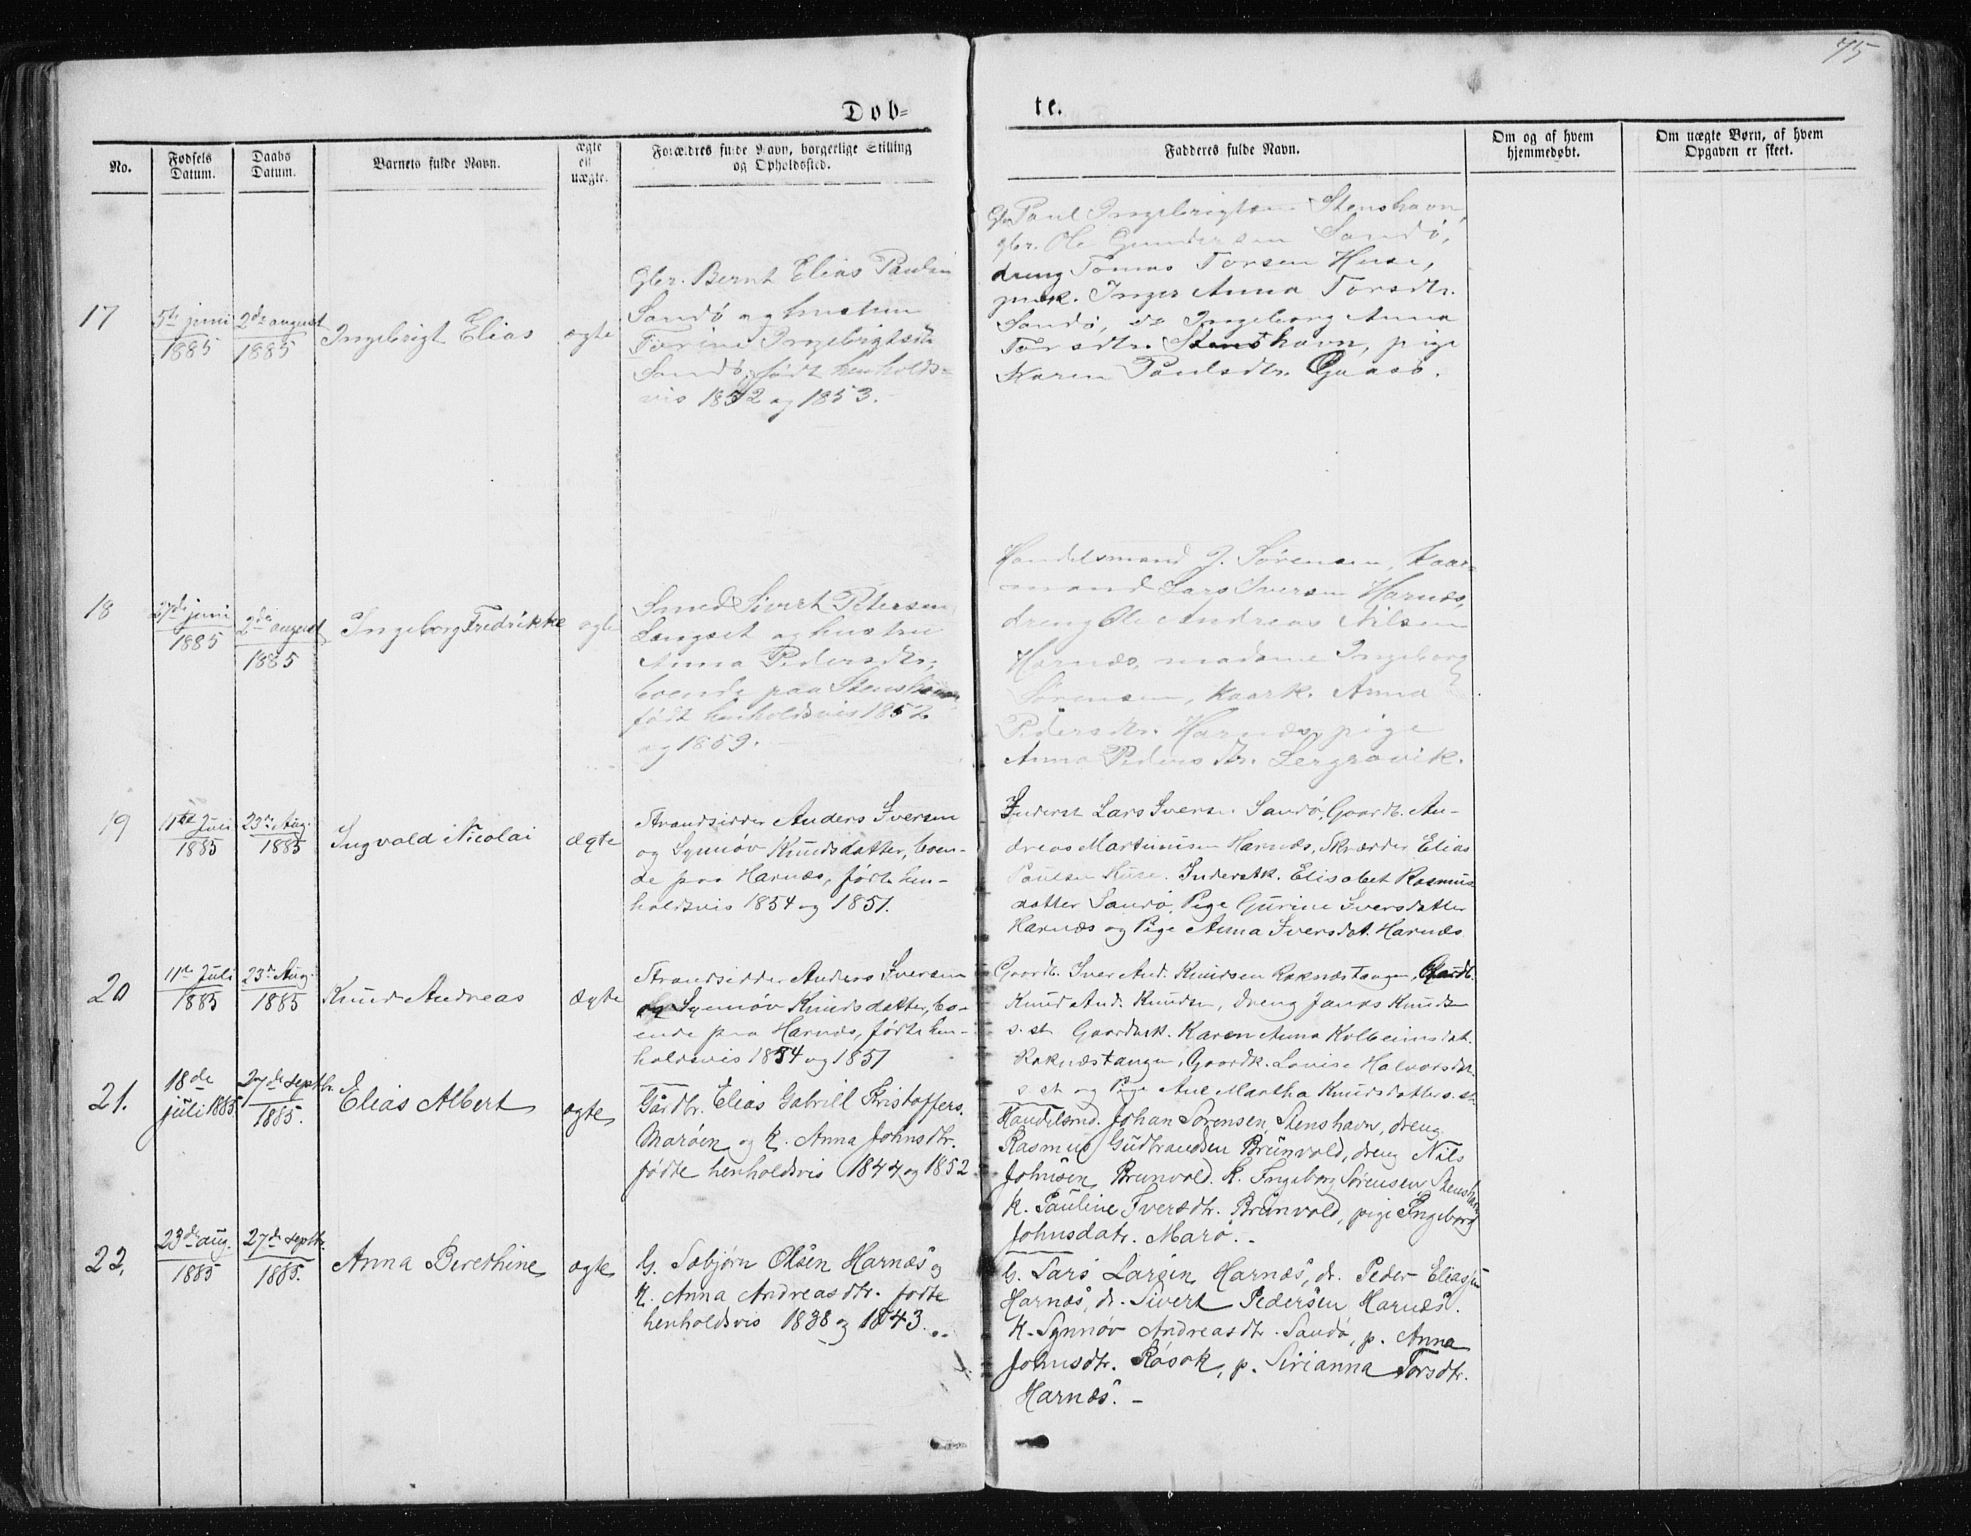 75
Døb= te.
No. Fødsels Datum. Daabs Datum. Barnets fulde Navn. ægte ell uægte. Forældres fulde Navn, borgerlige Stilling og Opholdssted. Fadderes fulde Navn. Om og af hvem hjemmedøbt. Om uægte Børn, af hvem Opgaven er skeet.
17
5te juni 1885
2den august 1885
Ingebrigt Elias
ægte
Gbr. Bernt Elias Paulsen
Sandø og hustru
Ingebrigtsdtr
Sandø, født henholds-
vis 1852 og 1853.
Paul Ingebrigtsen Stenshavn,
gbr. Ole Gundersen Sandø,
dreng Tomas Torsen Huse,
Inger Anna Torsdtr.
Sandø, Ingeborg Anna
Torsdtr. Stenshavn, pige
Karen Paulsdtr. Gaasø.
18
27de juni 1885
2den august 1885
Ingeborg Fredrikke
ægte
Smed Sivert Petersen
Langset og hustru
Anna Pedersdtr,
boende paa Stenshavn,
født henholdsvis 1852
og 1859.
Handelsmand J. Sørensen, kaar-
mand Lars Iversen Harnæs,
dreng Ole Andreas Nilsen
Harnæs, madame Ingeborg
Sørensen, kaark. Anna
Pedersdtr. Harnæs, pige
Anna Pedersdtr. Lergrovik.
19
11te Juli 1885
23de Aug. 1885
Ingvald Nicolai
ægte
Strandsidder Anders Iversen
og Synnøv Knudsdatter, boen-
de paa Harnæs, født hen-
holdsvis 1854 og 1851.
Inderst Lars Iversen Sandø, Gaardb. An-
dreas Martinusen Harnæs, Skrædder Elias
Paulsen Huse. Inderstk. Elisabet Rasmus
datter Sandø, Pige Gurine Iversdatter
Harnæs og Pige Anna Iversdat. Harnæs
20
11te Juli 1885
23de Aug. 1885
Knud Andreas
ægte
Strandsidder Anders Iversen
og Synnøv Knudsdatter, bo-
ende paa Harnæs, født hen-
holdsvis 1854 og 1851
Gaardb. Iver And. Knudsen Raknæstangen, Gaardb.
Knud And. Knudsen, Dreng Knuds
s. st. Gaardbk. Karen Anna Kolbeinsdat.
Raknæstangen, Gaardk. Lovise Halvorsdat.
s. st. og Pige Ane Martha Knudsdatter s. st.
21.
18de juli 1885.
27de septbr. 1885.
Elias Albert
ægte
Gårdbr. Elias Gabriel Kristoffers.
Marøen og k. Anna Johnsdtr.
fødte henholdsvis 1844 og 1852
Handelsmd. Johan Sørensen, Stenshavn, dreng
Rasmus Gudbrandsen Brunvold, dreng Nils
Johnsen Brunvold. k. Ingeborg Sørensen Stenshavn
k. Pauline Iversdtr. Brunvold, pige Ingeborg
Johnsdatr. Marø. -
22.
23de aug. 1885
27de septbr. 1885.
Anna Berethine
ægte
G. Sæbjørn Olsen Harnæs og
k. Anna Andreasdtr. fødte
henholdsvis 1838 og 1843.
G. Lars Larsen Harnæs, dr. Peder Eliassen
Harnæs, dr. Sivert Pedersen Harnæs.
K. Synnøv Andreasdtr. Sandø, p. Anna
Johnsdtr. Røsok, p. Sirianna Torsdtr.
Harnæs. -